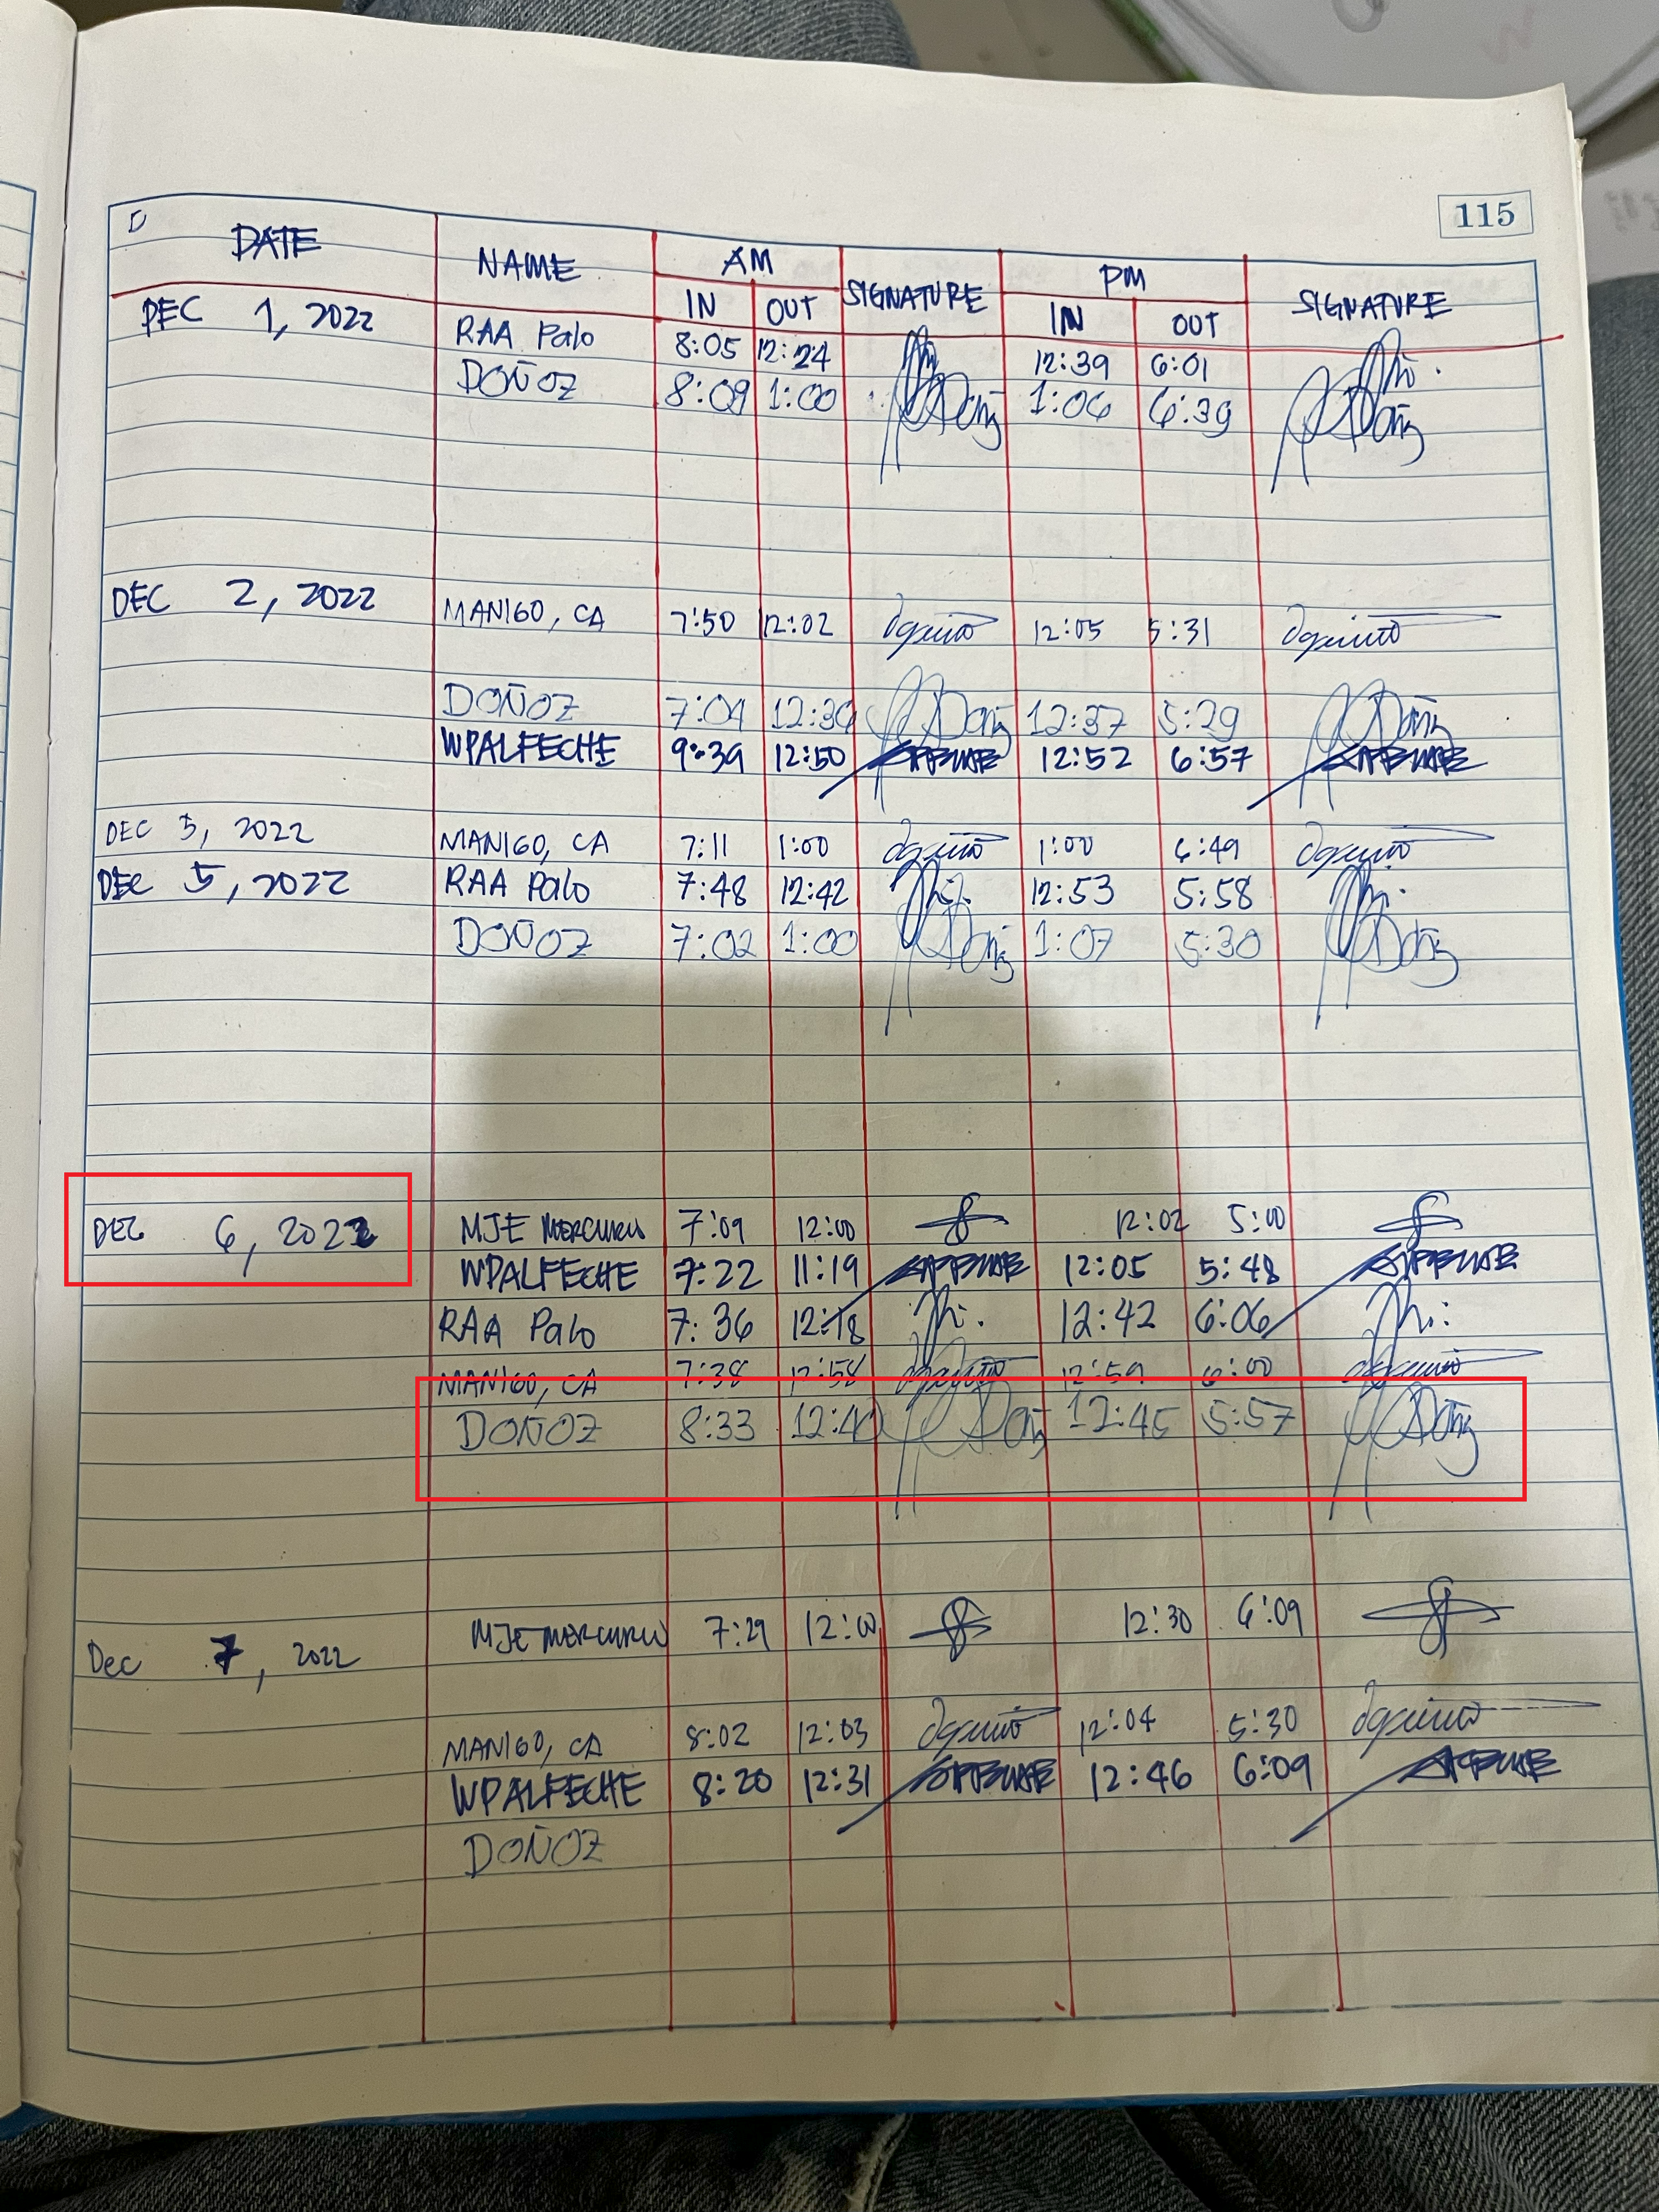 115
DATE NAME AM SIGNATURE PM SIGNATURE
IN OUT IN OUT
DEC 1, 2022 RAA Palo 8:05 12:24 12:39 6:01
DOÑOZ 8:09 1:00 1:06 6:39
DEC 2, 2022 MANIGO, CA 7:50 12:02 12:05 5:31
DOÑOZ 7:04 12:12:37 5:29
WPALFECHE 9:39 12:50 12:52 6:57
DEC 5, 2022 MANIGO, CA 7:11 1:00 1:00 6:49
DEC 5, 2022 RAA Palo 7:48 12:42 12:53 5:58
DOÑOZ 7:02 1:00 1:07 5:30
DEC 6, 2022 MJE MERCURIO 7:09 12:00 12:02 5:00
WPALFECHE 7:22 11:19 12:05 5:48
RAA Palo 7:36 12:18 12:42 6:06
MANIGO, CA 7:38 12:58 12:59 6:00
DOÑOZ 8:33 12:40 12:45 5:57
Dec 7, 2022 MJE MERCURIO 7:29 12:00 12:30 6:09
MANIGO, CA 8:02 12:03 12:04 5:30
WPALFECHE 8:20 12:31 12:46 6:09
DOÑOZ